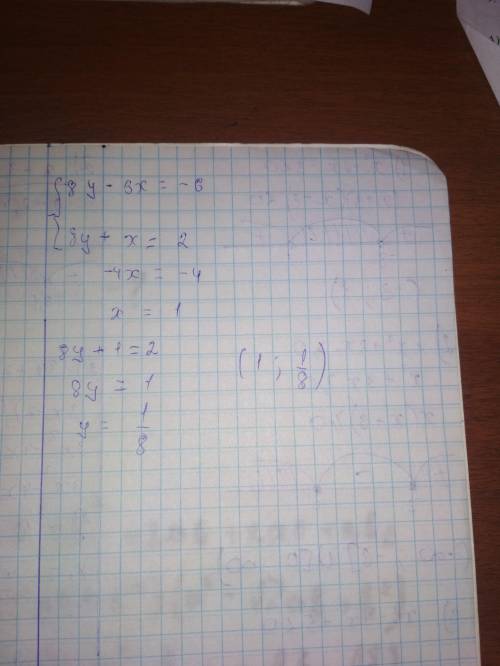 8y - 6x = -6
8y + x = 2
-4x = -4
x = 1
8y + 1 = 2
8y = 1
y = 1/8
(1 ; 1/8)